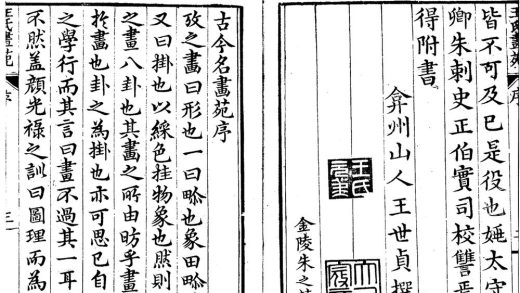 王氏畫苑
序
皆不可及已是役也姬太守
卿朱刺史正伯實司校讐焉
得附書
弇州山人王世貞撰
王氏元美
金陵朱之
古今名畫苑序
攷之畫曰形也一曰畛也象田畛
又曰掛也以綵色挂物象也然則
之畫八卦也其畫之所由昉乎畫
於畫也卦之為掛也亦可思已自
之學行而其言曰畫不過其一耳
不然盖顏光祿之訓曰圖理而為
王氏畫苑
序
三